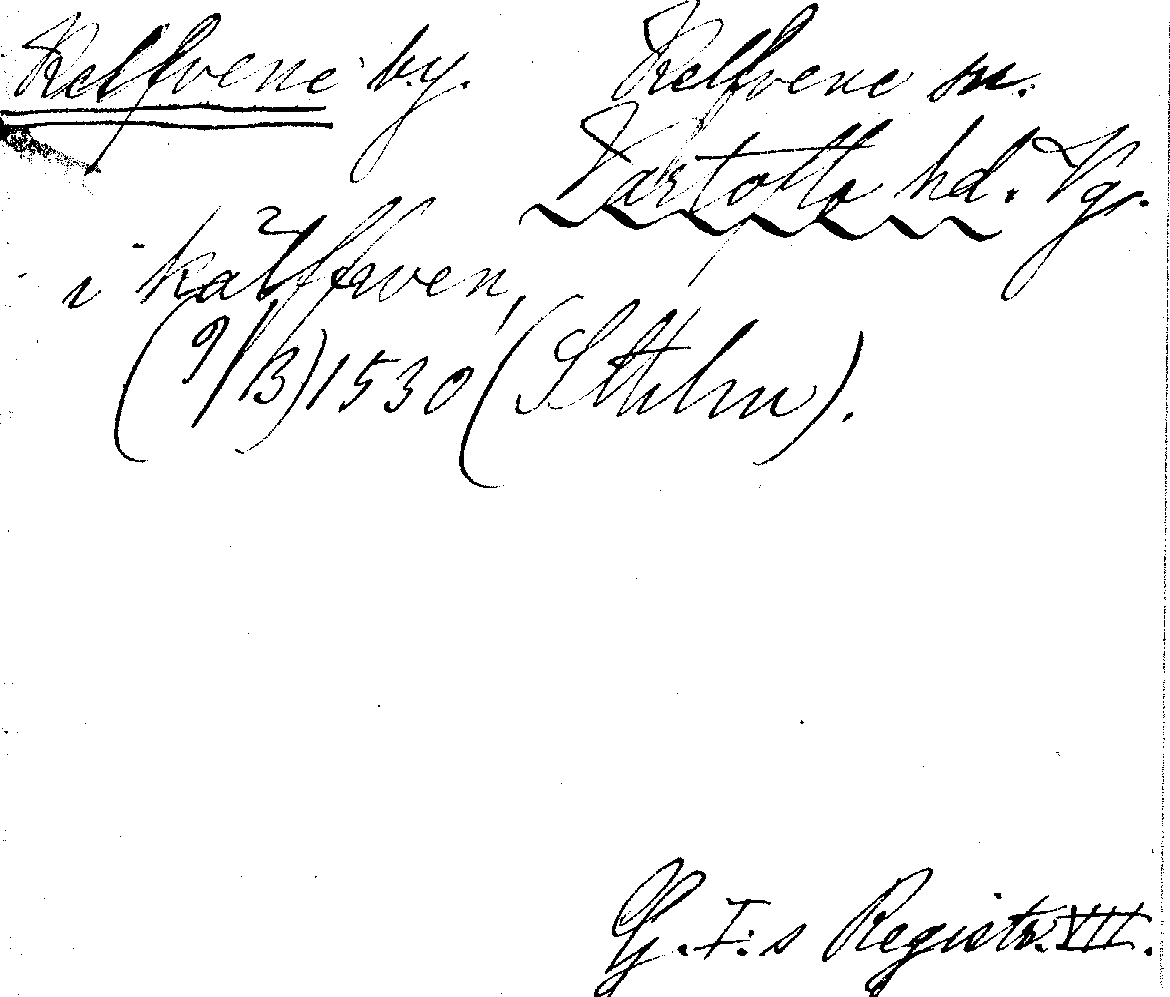 Kelfvene by. Kelfvene sn.
Vartofta hd. Vg.
i kälffwen,
(9/3) 1530 (Sthlm).
G. I:s Registr. VII.